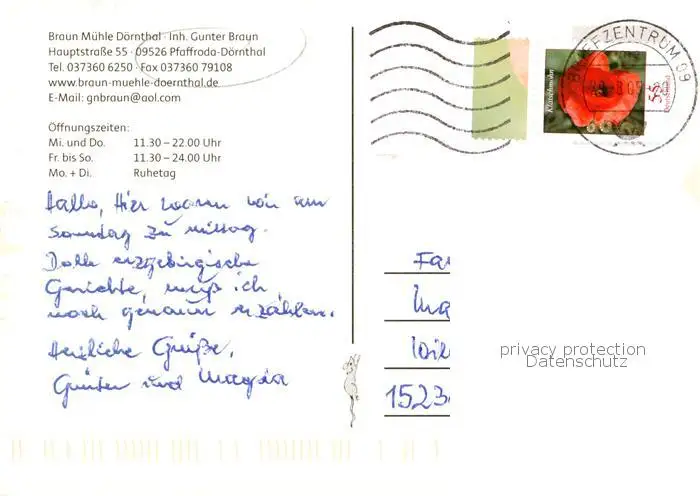 Braun Mühle Dörnthal · Inh. Gunter Braun
Hauptstraße 55 · 09526 Pfaffroda-Dörnthal
Tel. 037360 6250 · Fax 037360 79108
www.braun-muehle-doernthal.de
E-Mail: gnbraun@aol.com
Öffnungszeiten:
Mi. und Do. 11.30 – 22.00 Uhr
Fr. bis So. 11.30 – 24.00 Uhr
Mo. + Di. Ruhetag
Hallo, Hier waren wir am
Sonntag zu Mittag.
Dolle erzgebirgische
Gerichte, muß ich
noch genauer erzählen.
Herzliche Grüße,
Günter und Magda
BRIEFZENTRUM 09
Klatschmohn
55
Deutschland
Fa
Ma
1523
privacy protection
Datenschutz